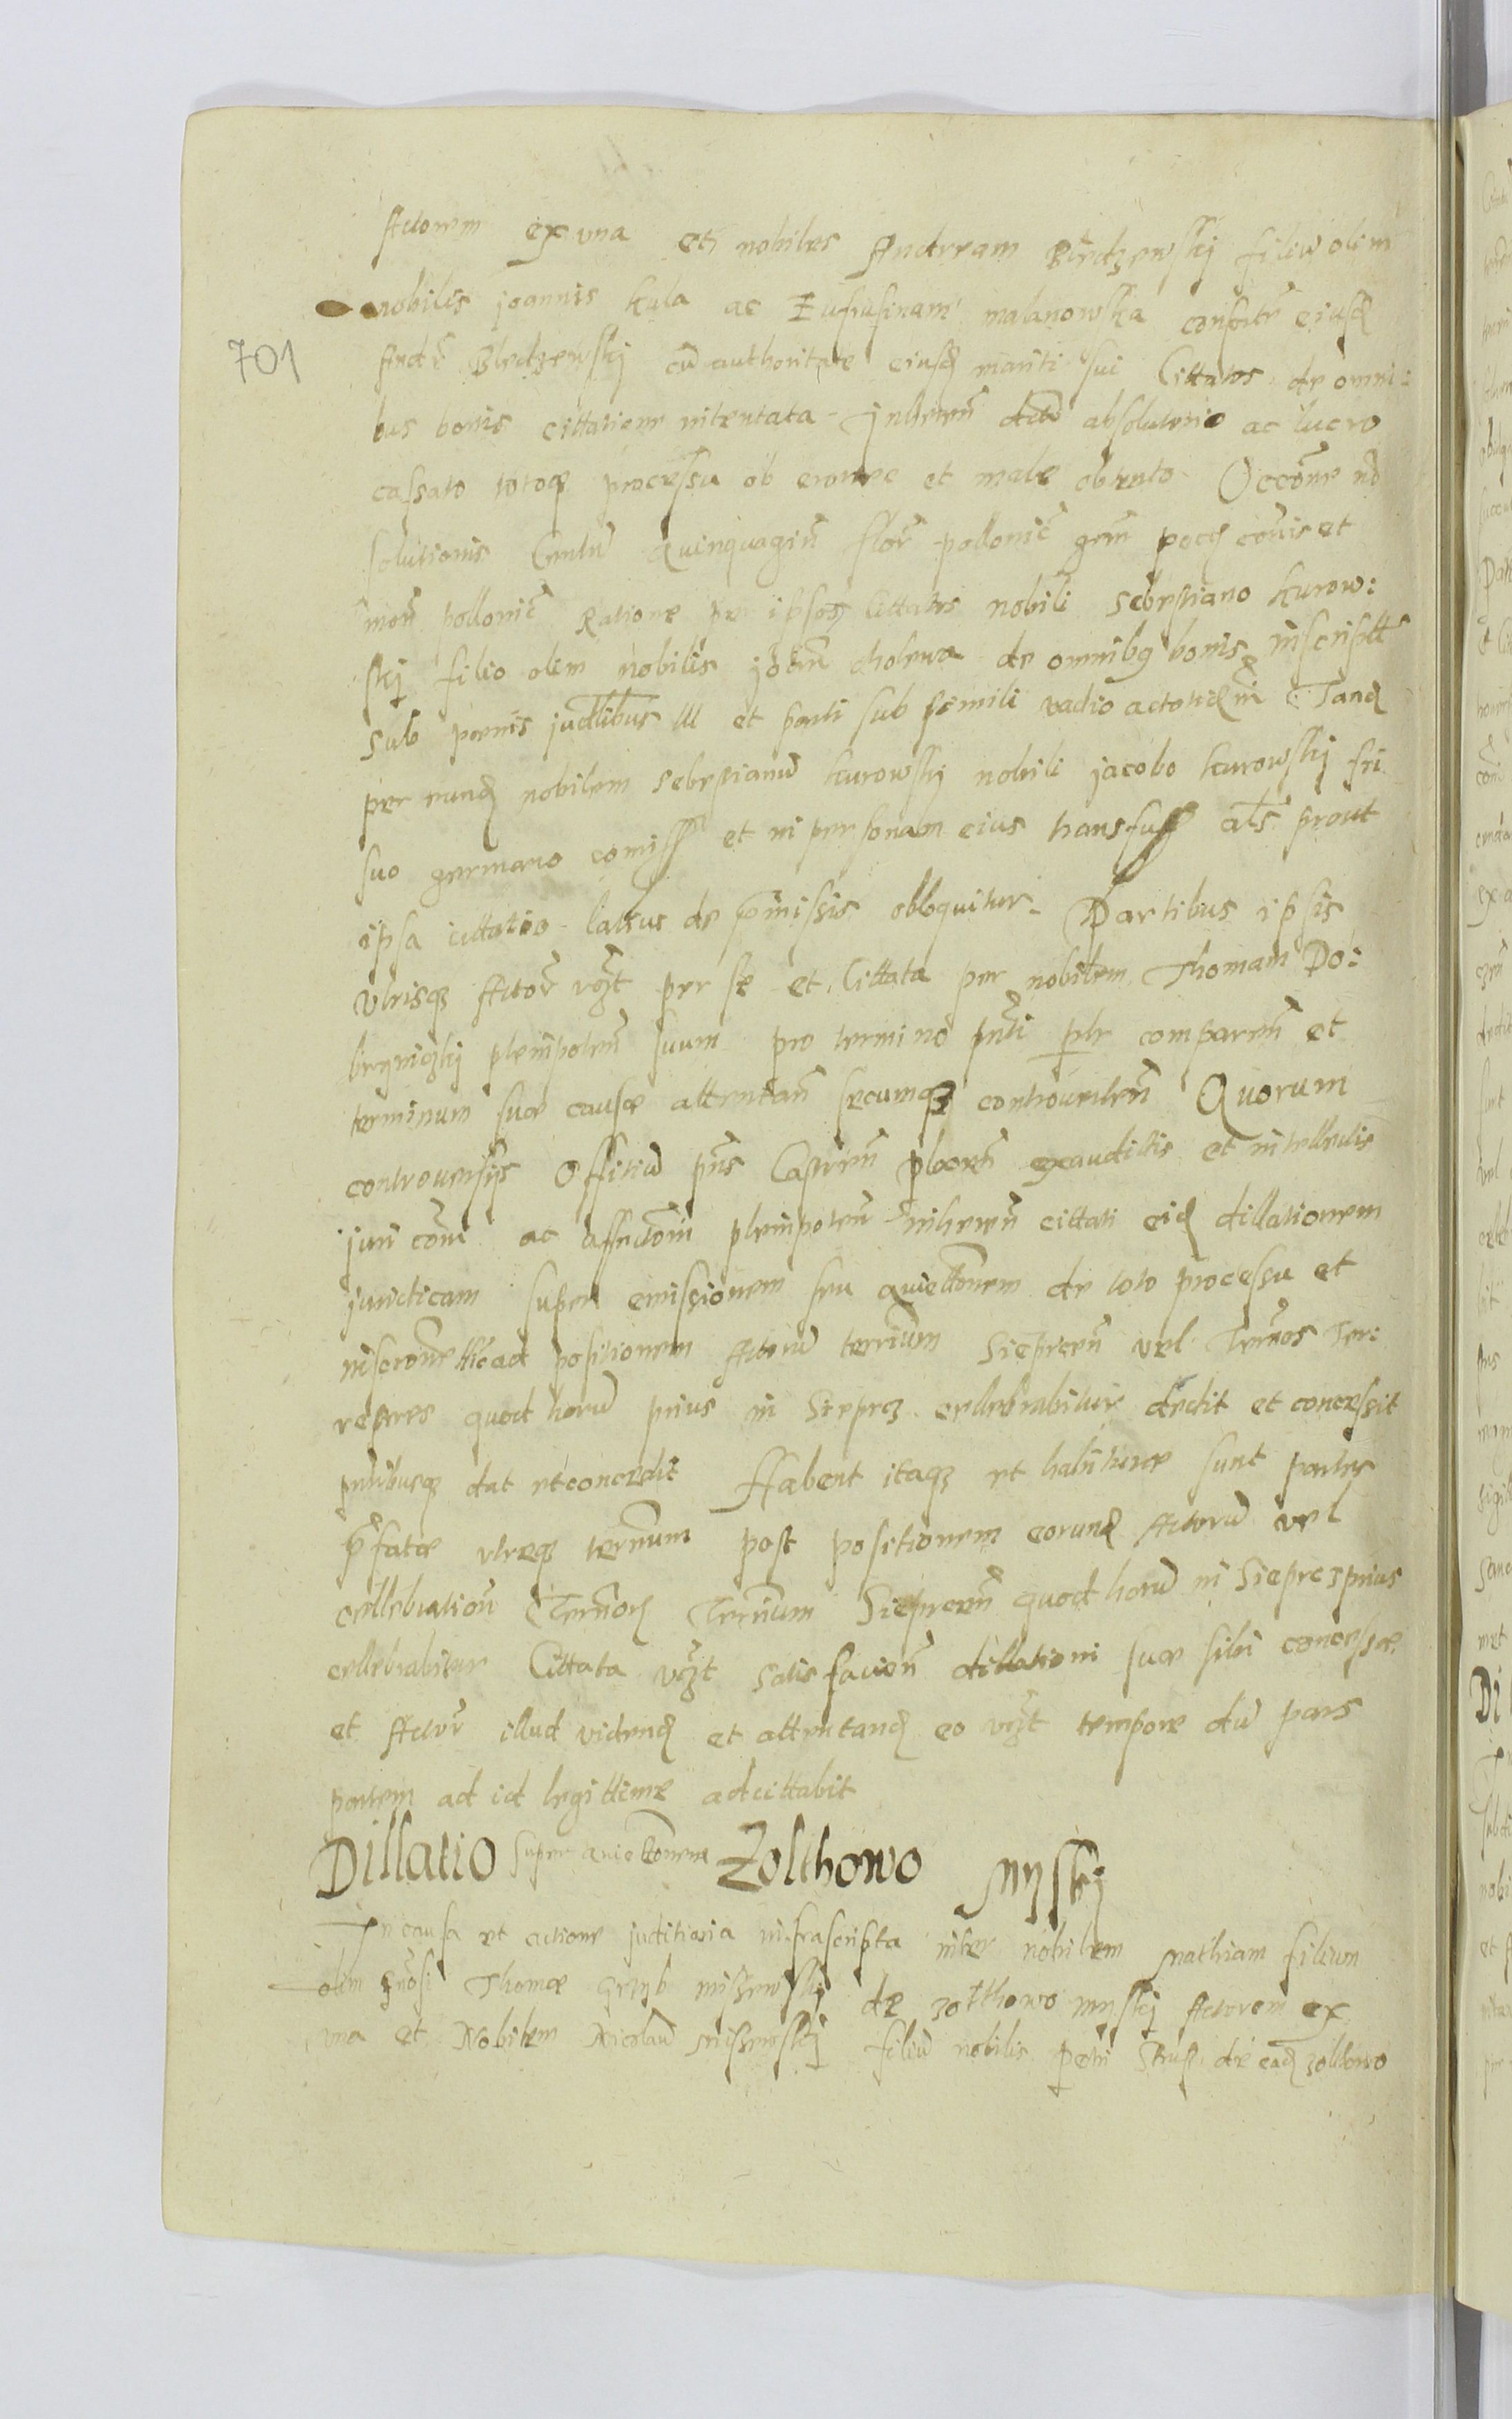 Actorem ex una et nobiles Andream Bledzewskj filiu olim
nobilis joannis kula ac Eufrusinam malanowska consorte eiusd
Andr Bledzewskj cu authoritate eiusd mariti sui Cittatos de omni:
bus bonis cittatione intentata Inheren absolutorio ac lucro
cassato totoq processu ob erronee et male obtento Occone no
solutionis Centu Quinquagin flor pollonic gem et
mon pollonic Ratione per ipsos Cittatos nobili Sebestiano kurow:
skj filio olim nobilis joan cholewa de omnibq bonis inscript
Sub poenis judlibus lll et parti sub simili vadio Tand
per eund nobilem Sebestianu kurowskj nobili jacobo kurowskj fri
suo germano comiss et in personam eius transfuss als prout
ipsa cittatio latius de pmissis obloquitur Partibus ipsis
Utrisqz Actor vzt per se et Cittata per nobilem Thomam Do:
plenipoten suum pro termino pnti plr comparen et
terminum suae causae attentan secumqz controverten Quorum
controuersijs Offitiu pns Castren plocen exaudittis et intellectis
juri com ac plenipoten inheren cittati eid dillationem
juridicam super emissionem seu quiettonem de toto processu et
inscrone ad positionem Actoru terrium Sieprcen vel Trmos Ter:
restres quod horu prius in Sieprcz cellebrabitur dedit et concessit
pntibusqz dat et concedit Habent itaqz et habiturae sunt partes
pfatae utraeqz termum post positionem eorund Actoru vel
cellebration Termor Terrium Sieprcen quod horu in Sieprcz prius
cellebrabitur Cittata vzt satisfacien dillationi suae sibi concessae
et Actor illud vidend et attentand eo vzt tempore du pars
partem ad id legittime adcittabit
Dillatio super quiettonem Zolthowo Myskj
In causa et actione juditiaria infrascripta inter nobilem Mathiam filium
olim gnosi Thomae miszewskj de zolthowo myskj Actorem ex
una et Nobilem Nicolau Miszewskj filiu nobilis petri Strus de ead zolthowo
701